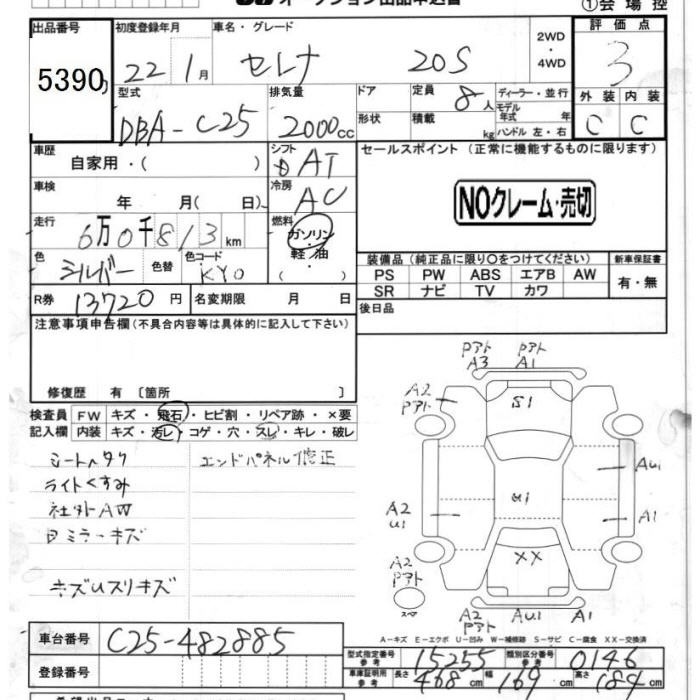 オークション出品申込書
①会場控
出品番号 初度登録年月 車名・グレード 2WD ・ 4WD 評価点
5390 22 1月 セレナ 20S 3
型式 排気量 ドア 定員 8人 ディーラー・並行 外装 内装
DBA-C25 2000cc 形状 積載 kg モデル年式 年 ハンドル 左・右 C C
車歴 自家用・( ) シフト AT セールスポイント(正常に機能するものに限ります)
車検 年 月( 日) 冷房 AC NOクレーム・売切
走行 6万0千813km 燃料 ガソリン・軽油・( )
色 シルバー 色替 色コード KY0
装備品(純正品に限り○をつけてください) 新車保証書
PS PW ABS エアB AW 有・無
SR ナビ TV カワ
R券 13720円 名変期限 月 日 後日品
注意事項申告欄(不具合内容等は具体的に記入して下さい)
修復歴 有〔箇所 〕
検査員 FW キズ・飛石・ヒビ割・リペア跡・×要
記入欄 内装 キズ・汚レ・コゲ・穴・スレ・キレ・破レ
シートヘタク エンドパネル修正
ライトくすみ
社外AW
ミラーキズ
キズUスリキズ
アト アト
A3 A1
A2
アト
S1
AU1
U1
A2
U1
A1
A2
アト
XX
スペア
A2
アト
AU1
A1
A-キズ E-エクボ U-凹み W-補修跡 S-サビ C-腐食 XX-交換済
車台番号 C25-482885
登録番号
型式指定番号 参考 15255 類別区分番号 参考 0146
車庫証明用 参考 長さ 468cm 幅 169cm 高さ 184cm